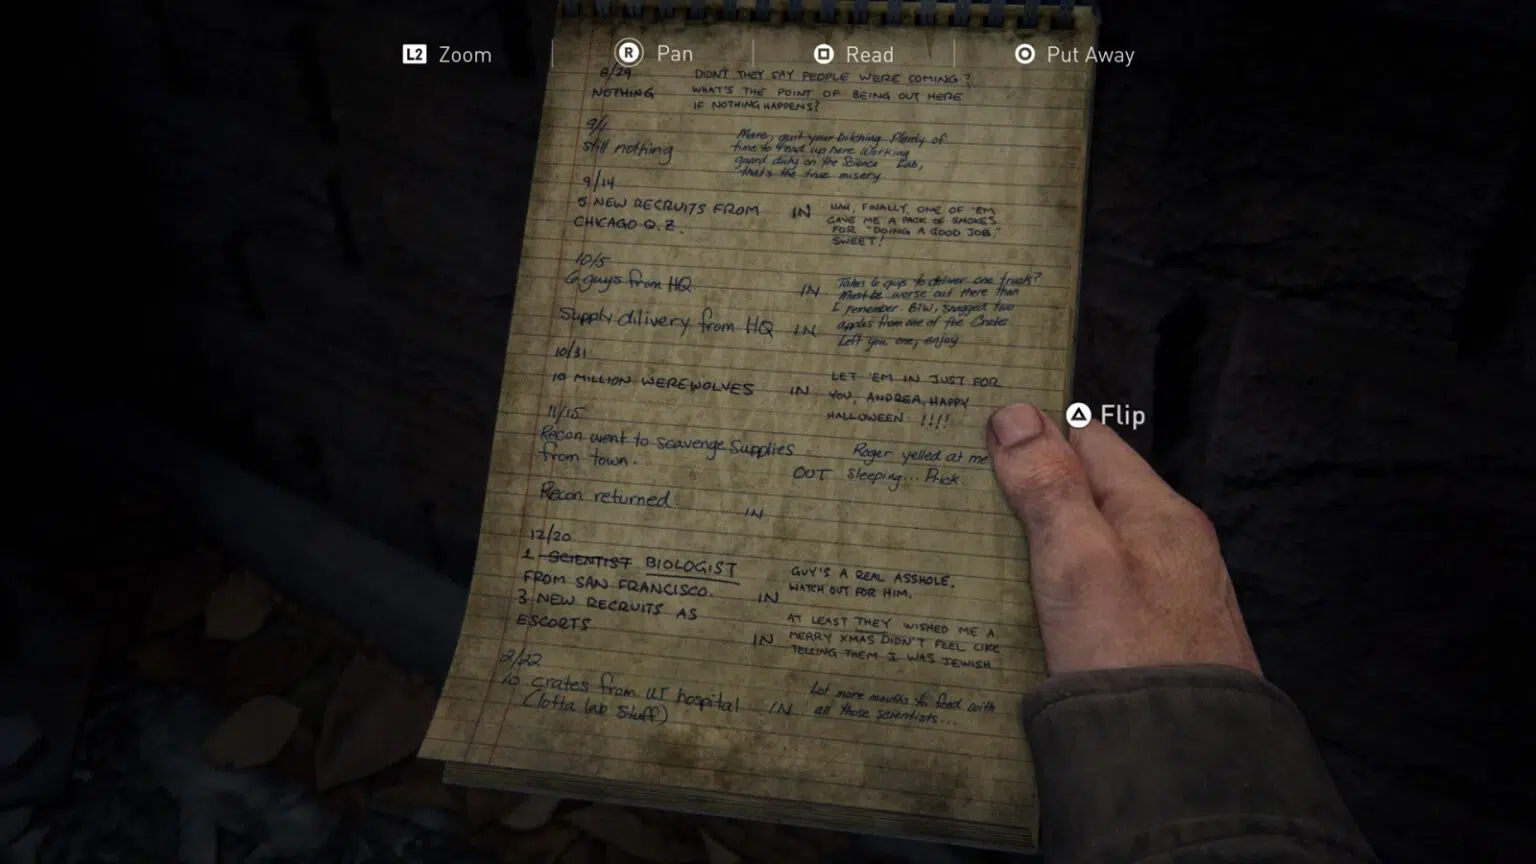 L2 Zoom R Pan Read Put Away
8/29 DIDNT THEY SAY PEOPLE WERE COMING?
NOTHING WHAT'S THE POINT OF BEING OUT HERE
IF NOTHING HAPPENS?
9/1 Mara, quit your bitching. Plenty of
still nothing time to read up here. Working
guard duty on the Science Lab,
that's the true misery
9/14
5 NEW RECRUITS FROM IN HAH, FINALLY. ONE OF 'EM
CHICAGO Q.Z. GAVE ME A PACK OF SMOKES
FOR "DOING A GOOD JOB."
SWEET!
10/5
6 guys from HQ IN Takes 6 guys to deliver one truck?
Must be worse out there than
I remember. BTW, snagged two
Supply dilivery from HQ IN apples from one of the Crates
Left you one, enjoy
10/31
10 MILLION WEREWOLVES IN LET 'EM IN JUST FOR
YOU, ANDREA. HAPPY
HALLOWEEN !!!!
Flip
11/15
Recon went to scavenge Supplies Roger yelled at me
from town. OUT sleeping... Prick.
Recon returned IN
12/20
1 SCIENTIST BIOLOGIST GUY'S A REAL ASSHOLE.
FROM SAN FRANCISCO. IN WATCH OUT FOR HIM.
3 NEW RECRUITS AS IN AT LEAST THEY WISHED ME A
ESCORTS MERRY XMAS DIDN'T FEEL LIKE
TELLING THEM I WAS JEWISH
2/22
10 crates from UT hospital IN Lot more mouths to feed with
(lotta lab Stuff) all those scientists...